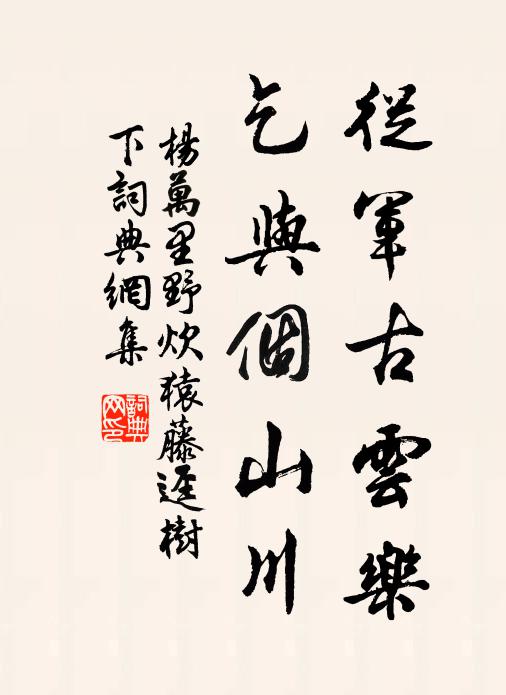 從軍古雲樂
乞與個山川
楊萬里野炊猿藤逕樹
下詞典網集
詞典
网印